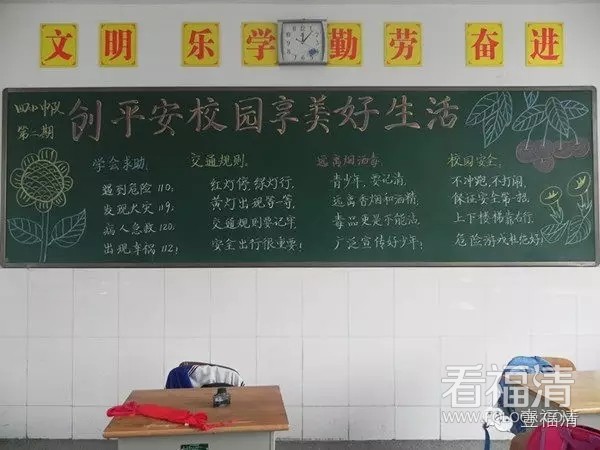 文明 乐学 勤劳 奋进
四(4)中队
第二期
创平安校园享美好生活
学会求助
遇到危险110,
发现火灾119,
病人急救120,
出现车祸112!
交通规则
红灯停,绿灯行,
黄灯出现等一等,
交通规则要记牢,
安全出行很重要!
远离烟酒毒
青少年,要记清,
远离香烟和酒精,
毒品更是不能沾,
广泛宣传好少年!
校园安全
不冲跑,不打闹,
保证安全第一招,
上下楼梯靠右行,
危险游戏杜绝好!
看福清
壹福清